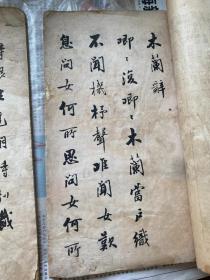 木蘭辭
唧〻復唧〻木蘭當户織
不聞機杼聲惟聞女歎
息問女何所思問女何所